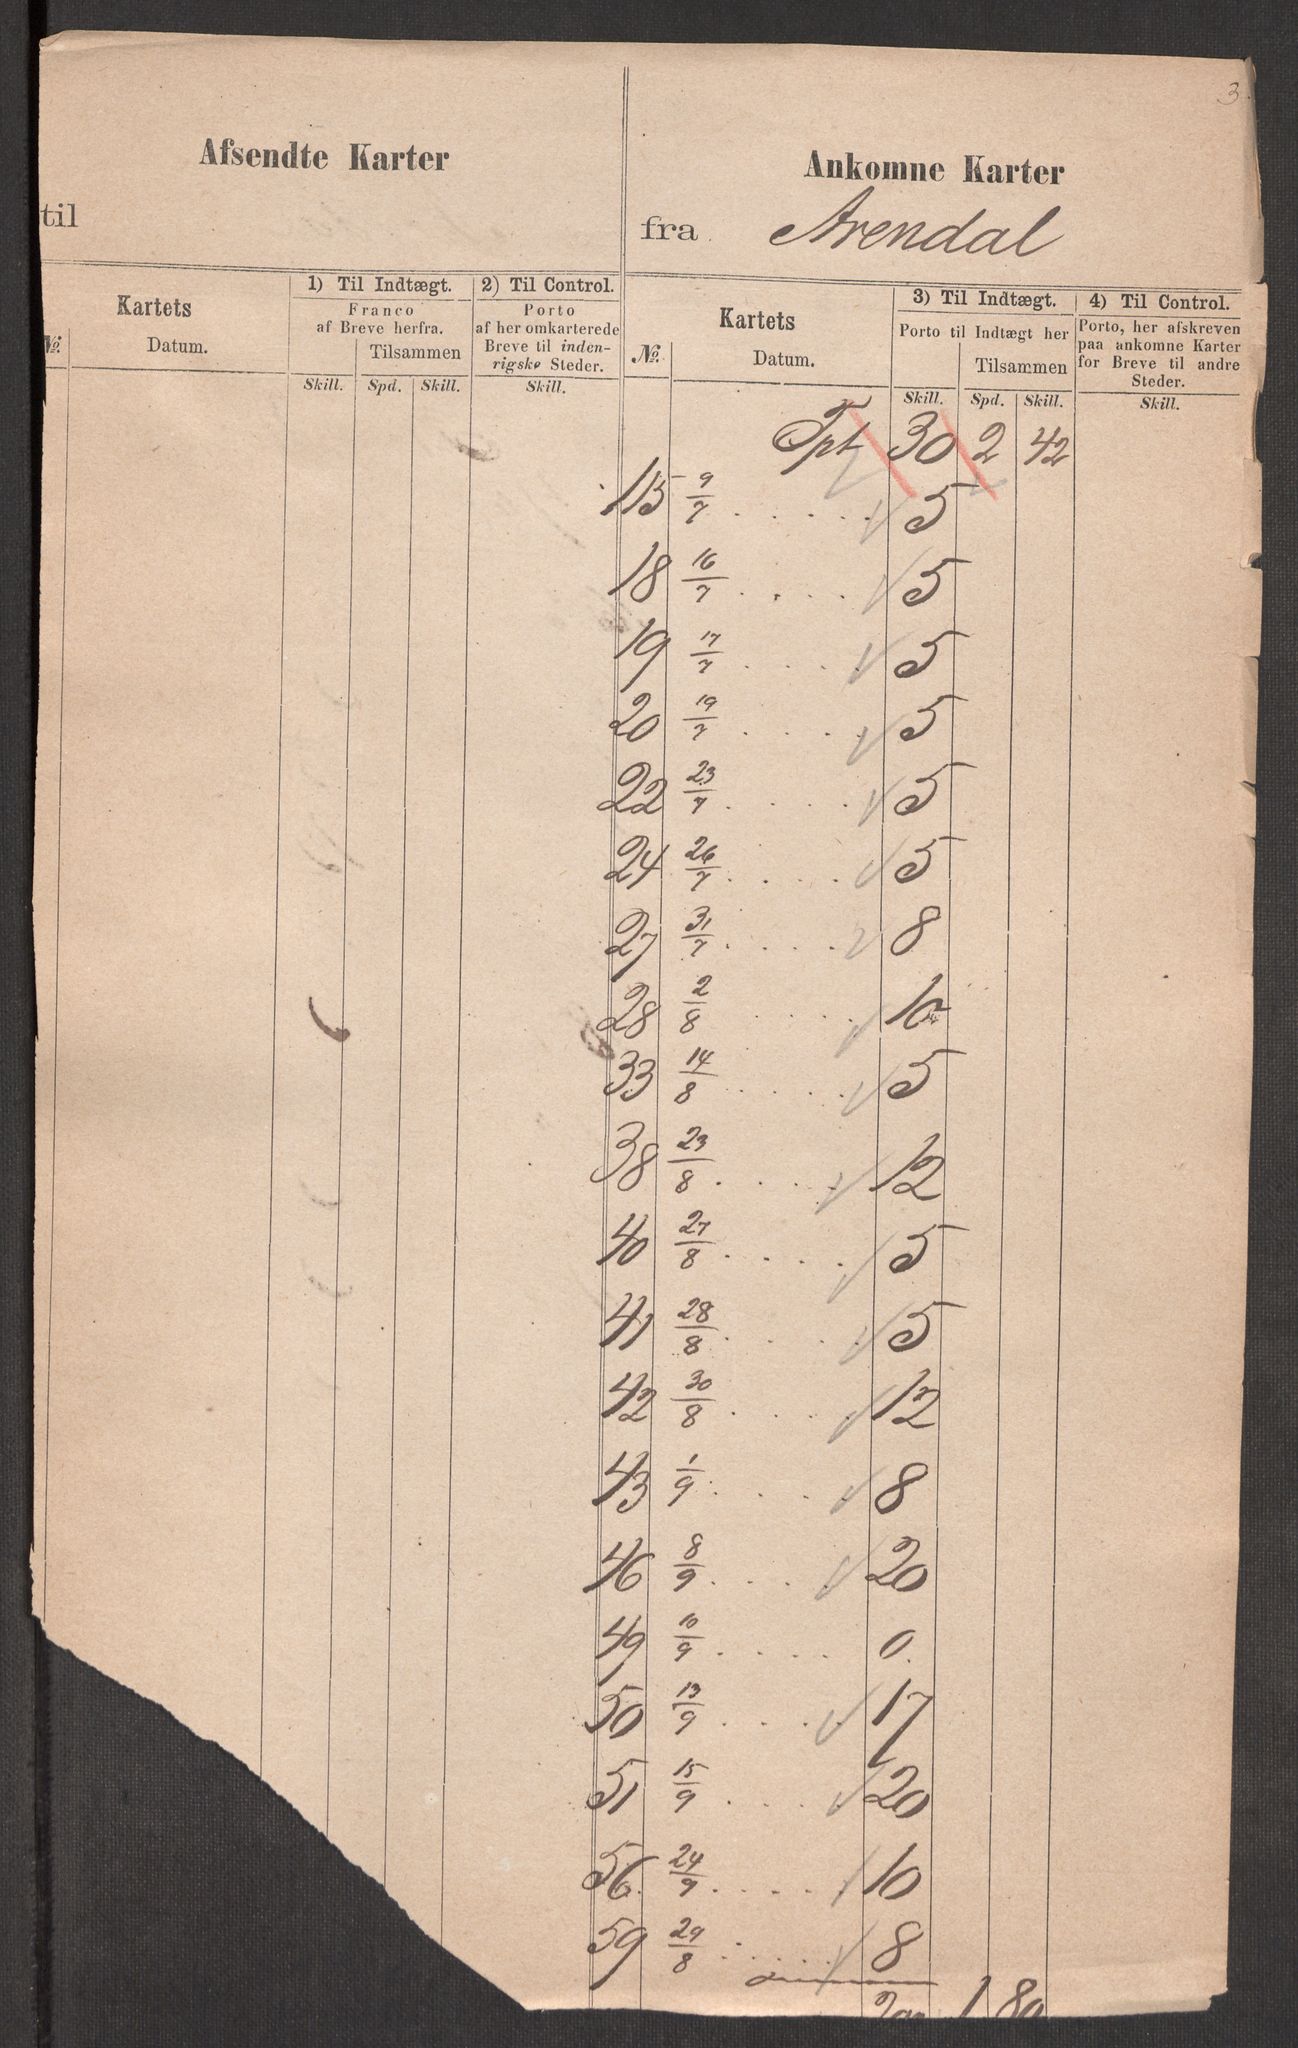 3
Afsendte Karter
Ankomne Karter
til
fra Arendal
Kartets
No. Datum.
1) Til Indtægt.
Franco
af Breve herfra.
Tilsammen
Skill. Spd. Skill.
2) Til Control.
Porto
af her omkarterede
Breve til inden-
rigske Steder.
Skill.
Kartets
No. Datum.
3) Til Indtægt.
Porto til Indtægt her
Tilsammen
Skill. Spd. Skill.
4) Til Control.
Porto, her afskreven
paa ankomne Karter
for Breve til andre
Steder.
Skill.
Tpt 30 2 42
115 9/7 . . . . . 5
18 16/7 . . . . 5
19 17/7 . . . . 5
20 19/7 . . . . 5
22 23/7 . . . . 5
24 26/7 . . . . 5
27 31/7 . . . . 8
28 2/8 . . . . 10
33 14/8 . . . . . 5
38 23/8 . . . . 12
40 27/8 . . . . 5
41 28/8 . . . . 5
42 30/8 . . . . 12
43 1/9 . . . . 8
46 8/9 . . . . 20
49 10/9 . . . . . 0
50 13/9 . . . . 17
51 15/9 . . . . 20
56 24/9 . . . . 10
59 29/8 . . . . . 8
1 80